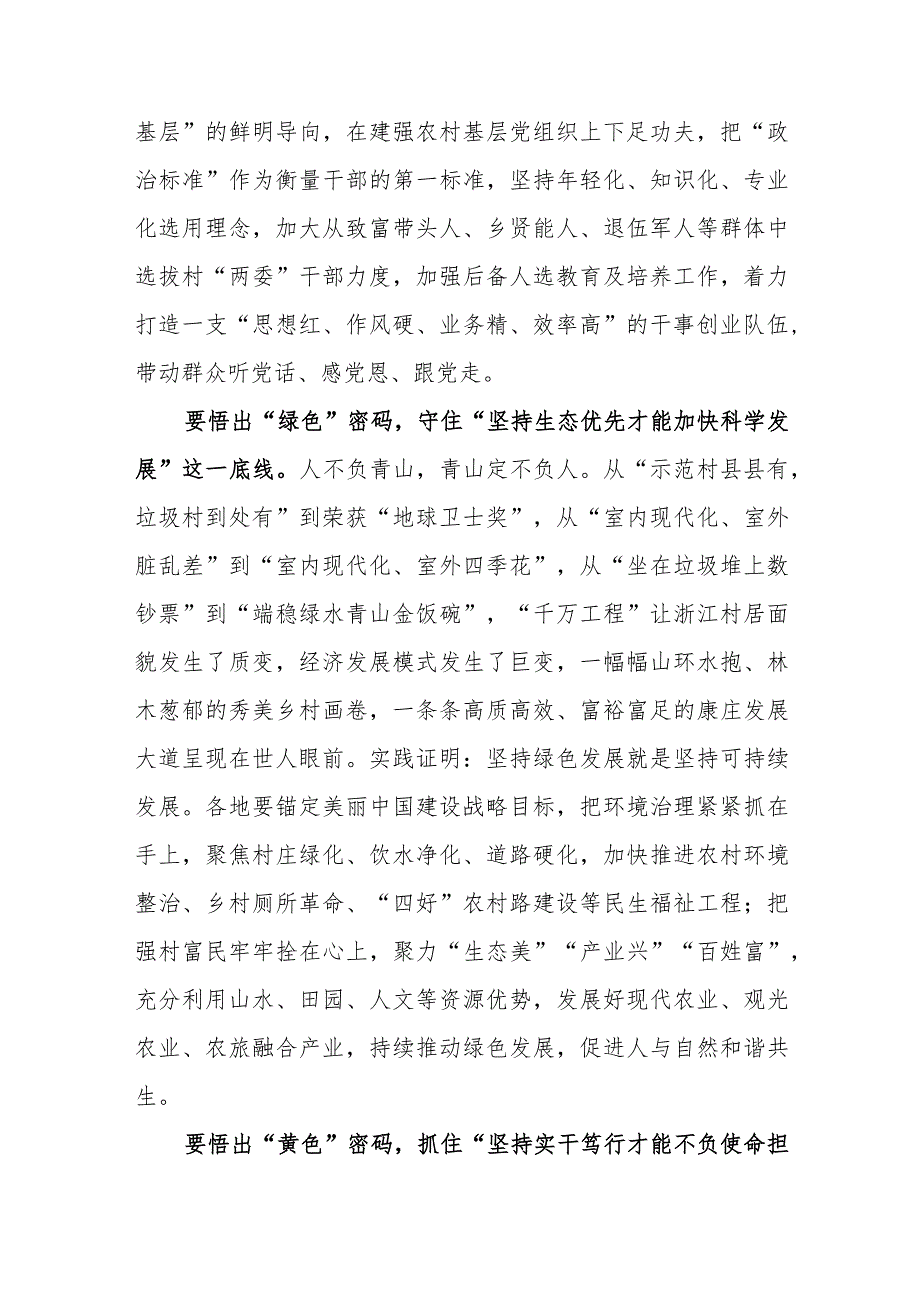 基层”的鲜明导向，在建强农村基层党组织上下足功夫，把“政
治标准”作为衡量干部的第一标准，坚持年轻化、知识化、专业
化选用理念，加大从致富带头人、乡贤能人、退伍军人等群体中
选拔村“两委”干部力度，加强后备人选教育及培养工作，着力
打造一支“思想红、作风硬、业务精、效率高”的干事创业队伍，
带动群众听党话、感党恩、跟党走。
要悟出“绿色”密码，守住“坚持生态优先才能加快科学发
展”这一底线。人不负青山，青山定不负人。从“示范村县县有，
垃圾村到处有”到荣获“地球卫士奖”，从“室内现代化、室外
脏乱差”到“室内现代化、室外四季花”，从“坐在垃圾堆上数
钞票”到“端稳绿水青山金饭碗”，“千万工程”让浙江村居面
貌发生了质变，经济发展模式发生了巨变，一幅幅山环水抱、林
木葱郁的秀美乡村画卷，一条条高质高效、富裕富足的康庄发展
大道呈现在世人眼前。实践证明：坚持绿色发展就是坚持可持续
发展。各地要锚定美丽中国建设战略目标，把环境治理紧紧抓在
手上，聚焦村庄绿化、饮水净化、道路硬化，加快推进农村环境
整治、乡村厕所革命、“四好”农村路建设等民生福祉工程；把
强村富民牢牢拴在心上，聚力“生态美”“产业兴”“百姓富”，
充分利用山水、田园、人文等资源优势，发展好现代农业、观光
农业、农旅融合产业，持续推动绿色发展，促进人与自然和谐共
生。
要悟出“黄色”密码，抓住“坚持实干笃行才能不负使命担